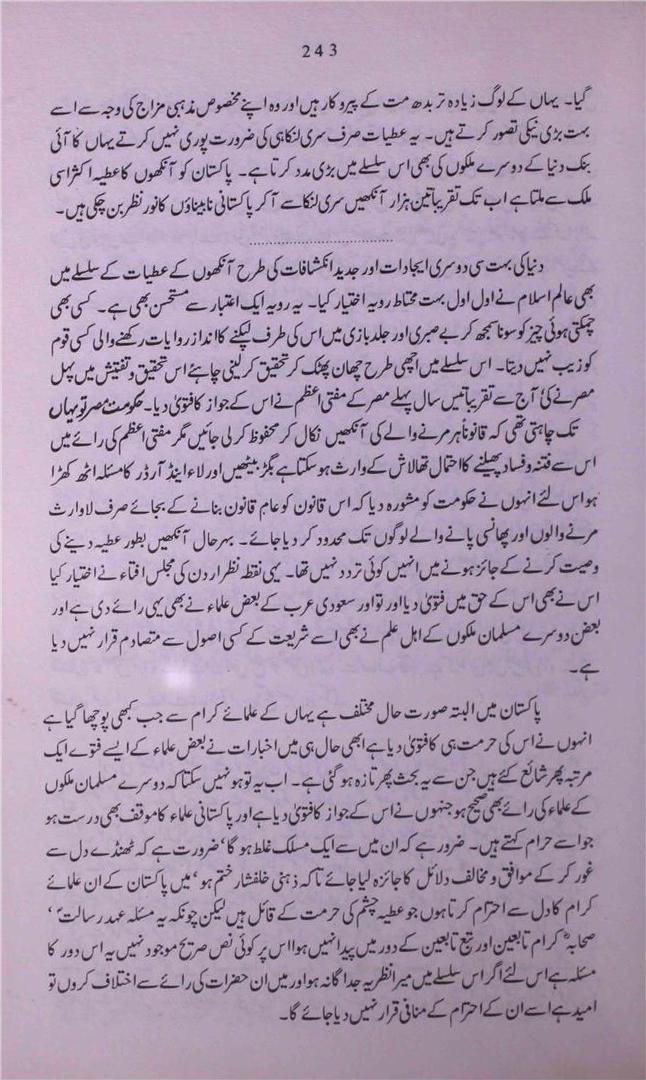 243
گیا۔ یہاں کے لوگ زیادہ تر بدھ مت کے پیروکار ہیں اور وہ اپنے مخصوص مذہبی مزاج کی وجہ سے اسے
بہت بڑی نیکی تصور کرتے ہیں۔ یہ عطیات صرف سری لنکا ہی کی ضرورت پوری نہیں کرتے یہاں کا آئی
بنک دنیا کے دوسرے ملکوں کی بھی اس سلسلے میں بڑی مدد کرتا ہے۔ پاکستان کو آنکھوں کا عطیہ اکثر اسی
ملک سے ملتا ہے اب تک تقریباً تین ہزار آنکھیں سری لنکا سے آ کر پاکستانی نابیناؤں کا نور نظر بن چکی ہیں۔
........................................
دنیا کی بہت سی دوسری ایجادات اور جدید انکشافات کی طرح آنکھوں کے عطیات کے سلسلے میں
بھی عالم اسلام نے اول اول بہت محتاط رویہ اختیار کیا۔ یہ رویہ ایک اعتبار سے مستحسن بھی ہے۔ کسی بھی
چمکتی ہوئی چیز کو سونا سمجھ کر بے صبری اور جلد بازی میں اس کی طرف لپکنے کا انداز روایات رکھنے والی کسی قوم
کو زیب نہیں دیتا۔ اس سلسلے میں اچھی طرح چھان پھٹک کر تحقیق کر لینی چاہئے اس تحقیق و تفتیش میں پہل
مصر نے کی آج سے تقریباً تیس سال پہلے مصر کے مفتی اعظم نے اس کے جواز کا فتویٰ دیا۔ حکومت مصر تو یہاں
تک چاہتی تھی کہ قانوناً ہر مرنے والے کی آنکھیں نکال کر محفوظ کر لی جائیں مگر مفتی اعظم کی رائے میں
اس سے فتنہ و فساد پھیلنے کا احتمال تھا لاش کے وارث ہو سکتا ہے بگڑ بیٹھیں اور لاء اینڈ آرڈر کا مسئلہ اٹھ کھڑا
ہو اس لئے انہوں نے حکومت کو مشورہ دیا کہ اس قانون کو عام قانون بنانے کے بجائے صرف لاوارث
مرنے والوں اور پھانسی پانے والے لوگوں تک محدود کر دیا جائے۔ بہر حال آنکھیں بطور عطیہ دینے کی
وصیت کرنے کے جائز ہونے میں انہیں کوئی تردد نہیں تھا۔ یہی نقطہ نظر اردن کی مجلس افتاء نے اختیار کیا
اس نے بھی اس کے حق میں فتویٰ دیا اور تو اور سعودی عرب کے بعض علماء نے بھی یہی رائے دی ہے اور
بعض دوسرے مسلمان ملکوں کے اہل علم نے بھی اسے شریعت کے کسی اصول سے متصادم قرار نہیں دیا
ہے۔
پاکستان میں البتہ صورت حال مختلف ہے یہاں کے علمائے کرام سے جب کبھی پوچھا گیا ہے
انہوں نے اس کی حرمت ہی کا فتویٰ دیا ہے ابھی حال ہی میں اخبارات نے بعض علماء کے ایسے فتوے ایک
مرتبہ پھر شائع کئے ہیں جن سے یہ بحث پھر تازہ ہو گئی ہے۔ اب یہ تو ہو نہیں سکتا کہ دوسرے مسلمان ملکوں
کے علماء کی رائے بھی صحیح ہو جنہوں نے اس کے جواز کا فتویٰ دیا ہے اور پاکستانی علماء کا موقف بھی درست ہو
جو اسے حرام کہتے ہیں۔ ضرور ہے کہ ان میں سے ایک مسلک غلط ہو گا‘ ضرورت ہے کہ ٹھنڈے دل سے
غور کر کے موافق و مخالف دلائل کا جائزہ لیا جائے تاکہ ذہنی خلفشار ختم ہو‘ میں پاکستان کے ان علمائے
کرام کا دل سے احترام کرتا ہوں جو عطیہ چشم کی حرمت کے قائل ہیں لیکن چونکہ یہ مسئلہ عہد رسالتؐ ‘
صحابہؓ کرام تابعین اور تبع تابعین کے دور میں پیدا نہیں ہوا اس پر کوئی نص صریح موجود نہیں یہ اس دور کا
مسئلہ ہے اس لئے اگر اس سلسلے میں میرا نظریہ جداگانہ ہو اور میں ان حضرات کی رائے سے اختلاف کروں تو
امید ہے اسے ان کے احترام کے منافی قرار نہیں دیا جائے گا۔